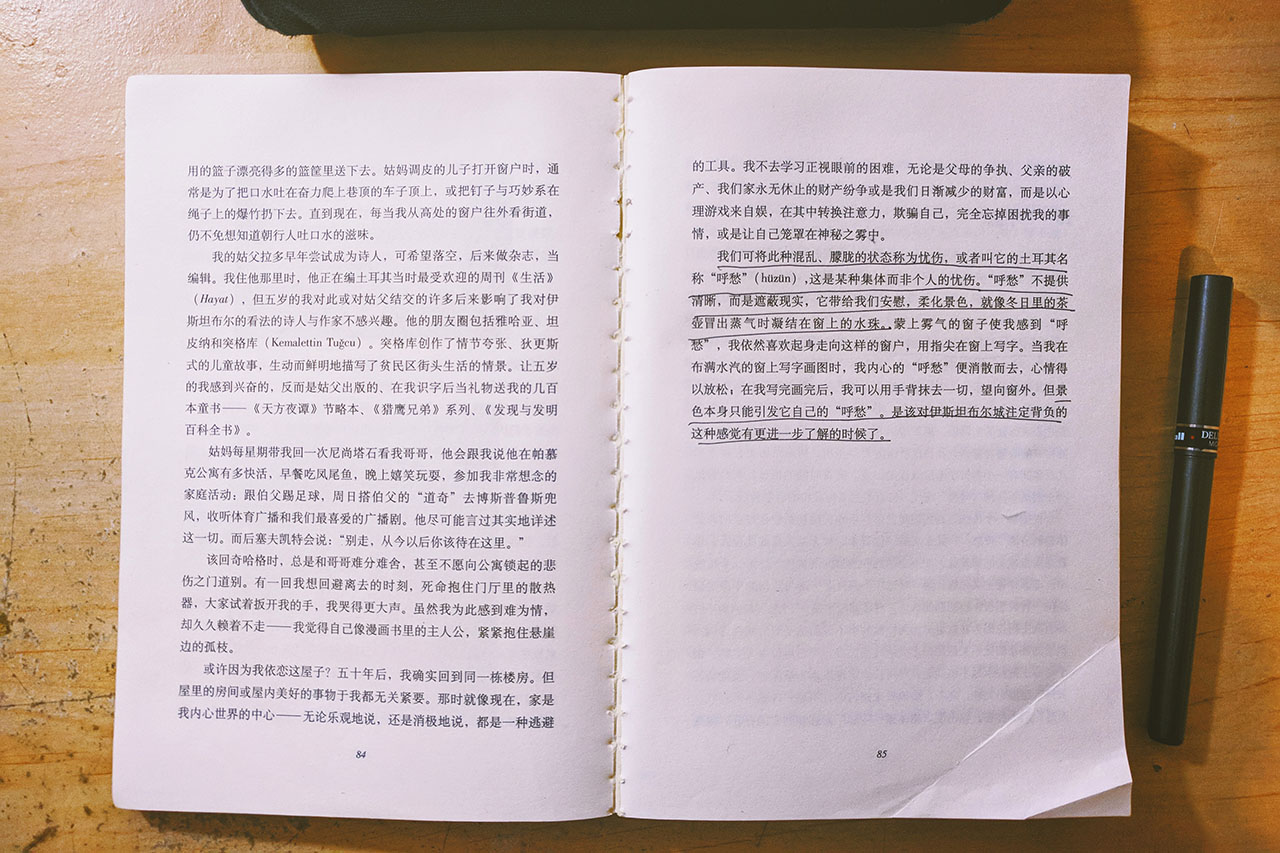 用的篮子漂亮得多的篮筐里送下去。姑妈调皮的儿子打开窗户时，通
常是为了把口水吐在奋力爬上巷顶的车子顶上，或把钉子与巧妙系在
绳子上的爆竹扔下去。直到现在，每当我从高处的窗户往外看街道，
仍不免想知道朝行人吐口水的滋味。
我的姑父拉多早年尝试成为诗人，可希望落空，后来做杂志，当
编辑。我住他那里时，他正在编土耳其当时最受欢迎的周刊《生活》
（Hayat），但五岁的我对此或对姑父结交的许多后来影响了我对伊
斯坦布尔的看法的诗人与作家不感兴趣。他的朋友圈包括雅哈亚、坦
皮纳和突格库（Kemalettin Tuğcu）。突格库创作了情节夸张、狄更斯
式的儿童故事，生动而鲜明地描写了贫民区街头生活的情景。让五岁
的我感到兴奋的，反而是姑父出版的、在我识字后当礼物送我的几百
本童书——《天方夜谭》节略本、《猎鹰兄弟》系列、《发现与发明
百科全书》。
姑妈每星期带我回一次尼尚塔石看我哥哥，他会跟我说他在帕慕
克公寓有多快活，早餐吃凤尾鱼，晚上嬉笑玩耍，参加我非常想念的
家庭活动：跟伯父踢足球，周日搭伯父的“道奇”去博斯普鲁斯兜
风，收听体育广播和我们最喜爱的广播剧。他尽可能言过其实地详述
这一切。而后塞夫凯特会说：“别走，从今以后你该待在这里。”
该回奇哈格时，总是和哥哥难分难舍，甚至不愿向公寓锁起的悲
伤之门道别。有一回我想回避离去的时刻，死命抱住门厅里的散热
器，大家试着扳开我的手，我哭得更大声。虽然我为此感到难为情，
却久久赖着不走——我觉得自己像漫画书里的主人公，紧紧抱住悬崖
边的孤枝。
或许因为我依恋这屋子？五十年后，我确实回到同一栋楼房。但
屋里的房间或屋内美好的事物于我都无关紧要。那时就像现在，家是
我内心世界的中心——无论乐观地说，还是消极地说，都是一种逃避
84
的工具。我不去学习正视眼前的困难，无论是父母的争执、父亲的破
产、我们家永无休止的财产纷争或是我们日渐减少的财富，而是以心
理游戏来自娱，在其中转换注意力，欺骗自己，完全忘掉困扰我的事
情，或是让自己笼罩在神秘之雾中。
我们可将此种混乱、朦胧的状态称为忧伤，或者叫它的土耳其名
称“呼愁”（hüzün），这是某种集体而非个人的忧伤。“呼愁”不提供
清晰，而是遮蔽现实，它带给我们安慰，柔化景色，就像冬日里的茶
壶冒出蒸气时凝结在窗上的水珠。蒙上雾气的窗子使我感到“呼
愁”，我依然喜欢起身走向这样的窗户，用指尖在窗上写字。当我在
布满水汽的窗上写字画图时，我内心的“呼愁”便消散而去，心情得
以放松；在我写完画完后，我可以用手背抹去一切，望向窗外。但景
色本身只能引发它自己的“呼愁”。是该对伊斯坦布尔城注定背负的
这种感觉有更进一步了解的时候了。
85